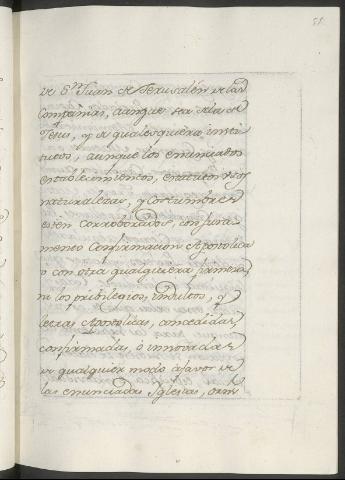 51.
de Sn. Juan de Jerusalén de las
Compañias, aunque sea dela de
Jesus, y de qualesquiera insti
tutos, aunque los enunciados
establecimientos, estatutos
naturalezas, y Costumbres
estén corroborados, con jura
mento Confirmación Apostolica
ó con otra qualquiera firmeza
ni los privilegios, indultos, y
letras Apostolicas, concedidas,
confirmadas, ó innovadas
de qualquier modo afavor de
las enunciadas Iglesias,